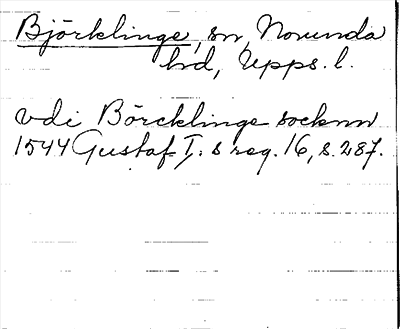 Björklinge, sn, Norunda
hd, Upps. l.
vdi Börcklinge socknn
1544 Gustaf I:s reg. 16, s. 287.